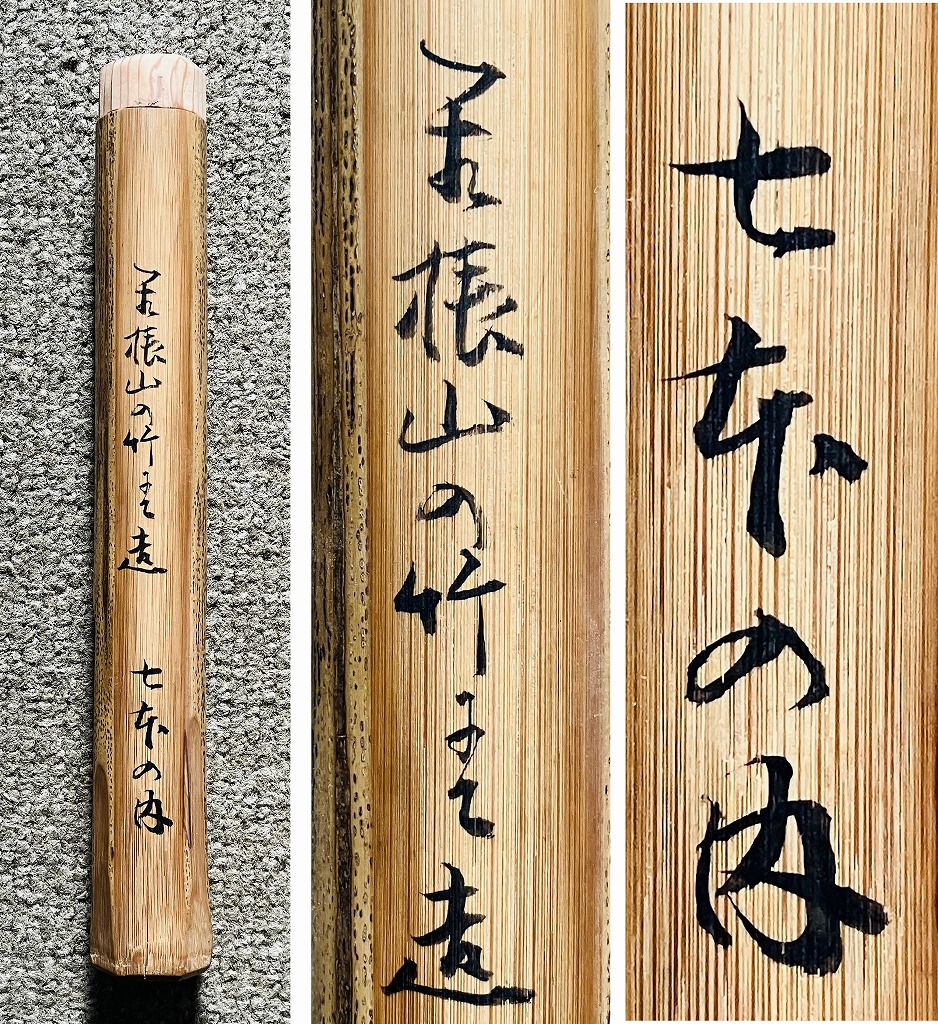 箱根山の竹にて造 七本の内
箱根山の竹にて造
七本の内